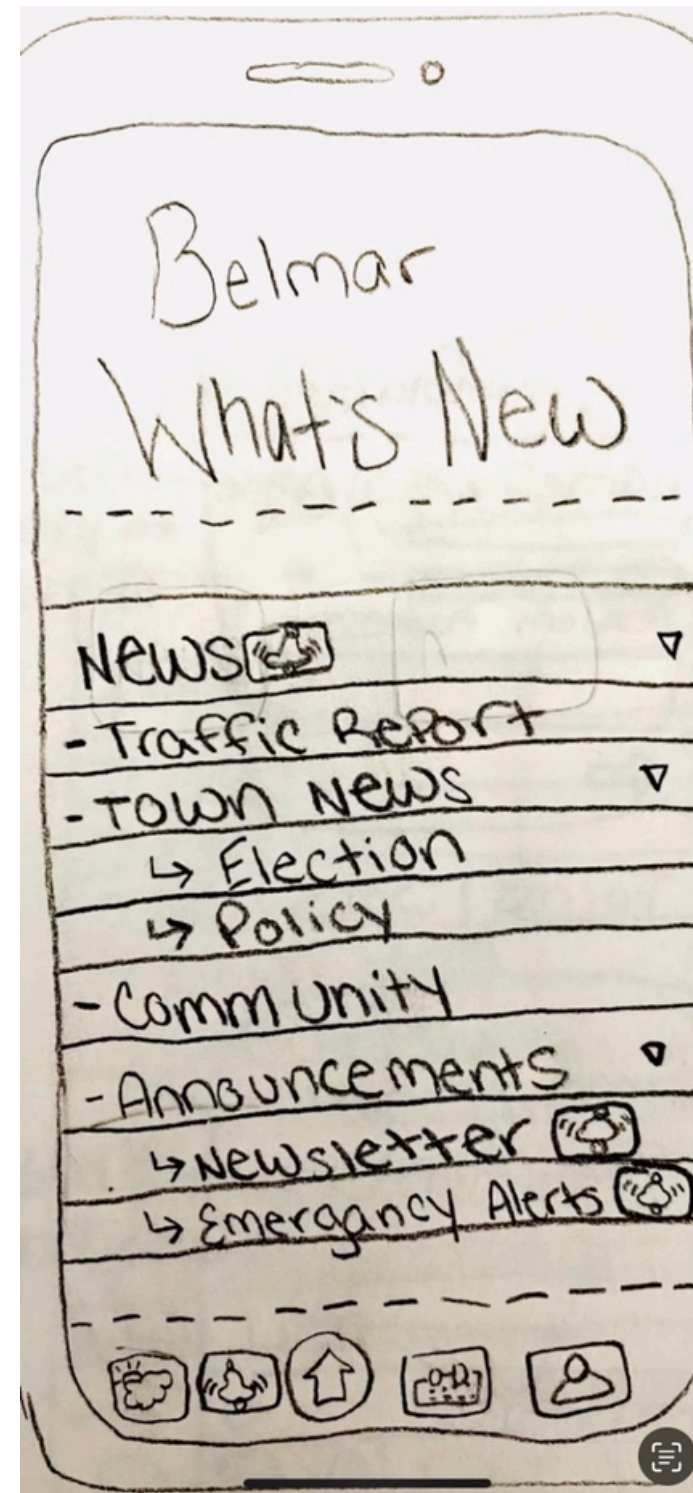 Belmar
What's New
News
- Traffic Report
- Town News
↳ Election
↳ Policy
- Community
- Announcements
↳ Newsletter
↳ Emergancy Alerts